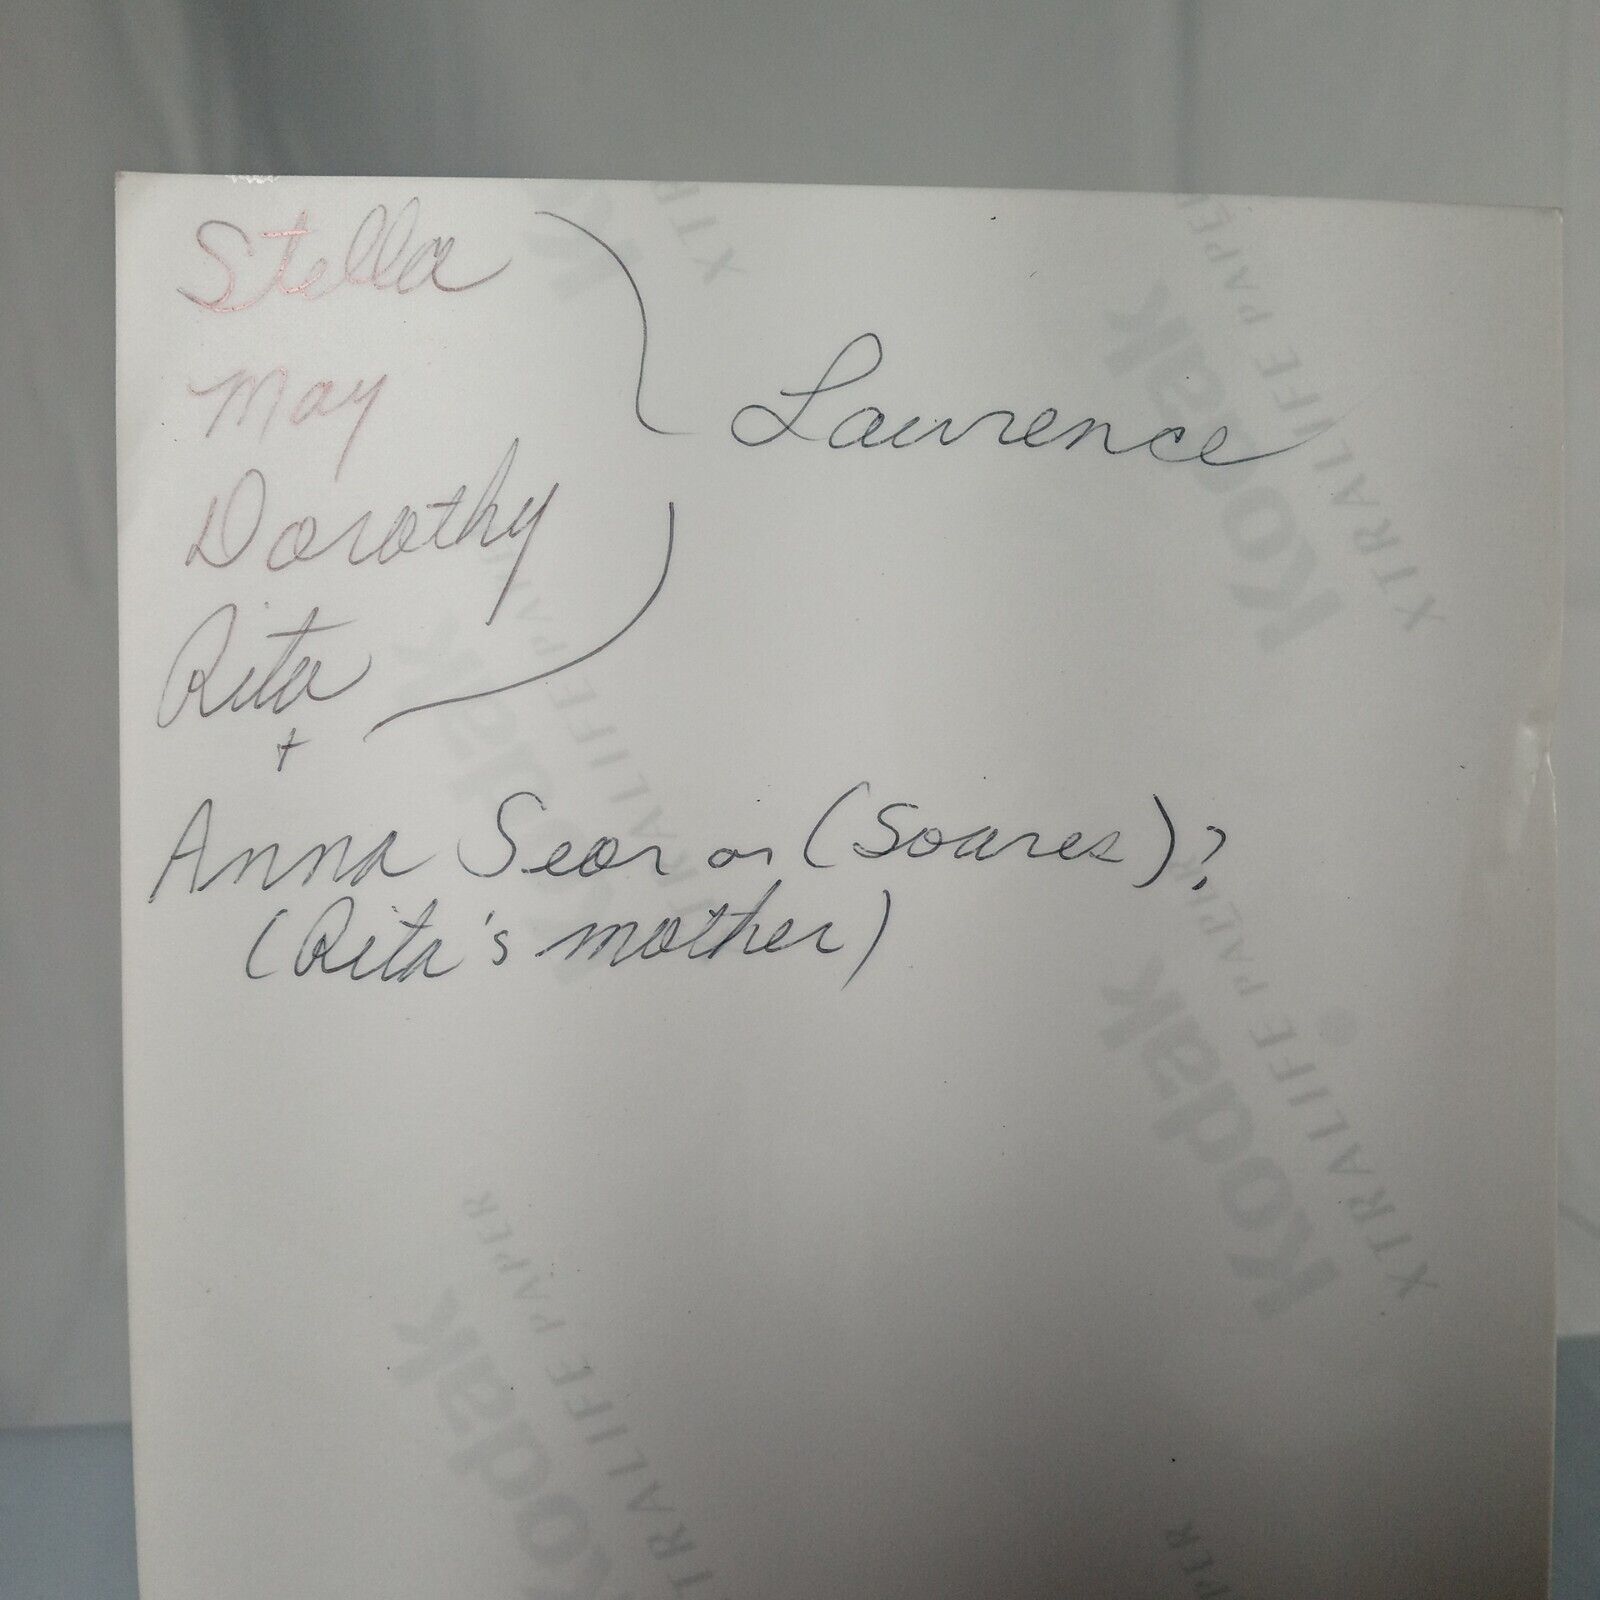 Stella
May
Lawrence
Dorothy
Rita
+
Anna Seor or (Soares)?
(Rita's mother)
Kodak
XTRALIFE PAPER
Kodak
XTRALIFE PAPER
Kodak
XTRALIFE PAPER